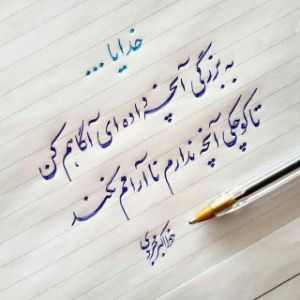 خدایا ...
به بزرگی آنچه داده ای آگاهم کن
تا کوچکی آنچه ندارم نا آرامم نکند